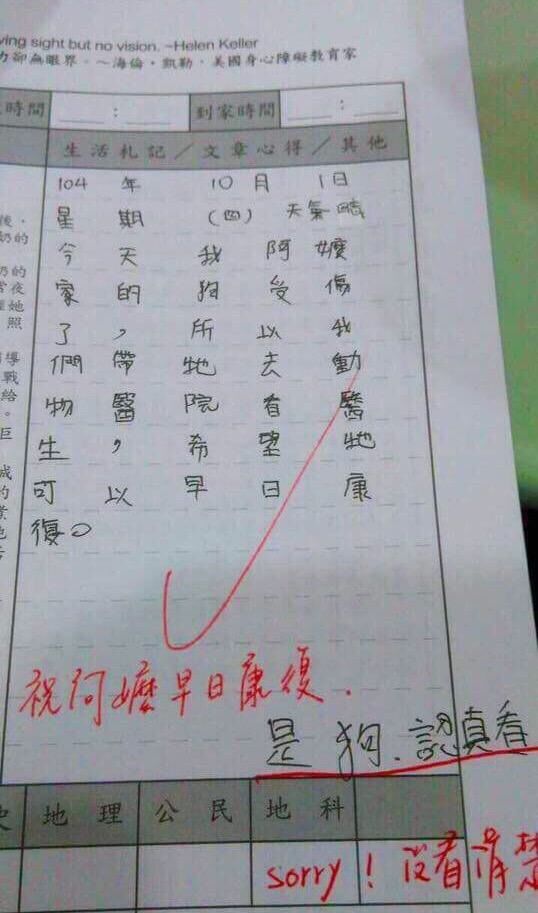 ving sight but no vision. ~Helen Keller
力卻無眼界。～海倫·凱勒，美國身心障礙教育家
時間 : 到家時間 :
生活札記／文章心得／其他
104 年 10 月 1日
星期 (四) 天氣晴
今天我阿嬤
家的狗受傷
了，所以我
們帶牠去動
物醫院看醫
生，希望牠
可以早日康
復。
後，
奶的
奶的
常夜
她
照
導
戰
給
。
巨
成
的
業
地
祝阿嬤早日康復.
是狗.認真看
史 地理 公民 地科
sorry！沒看清楚